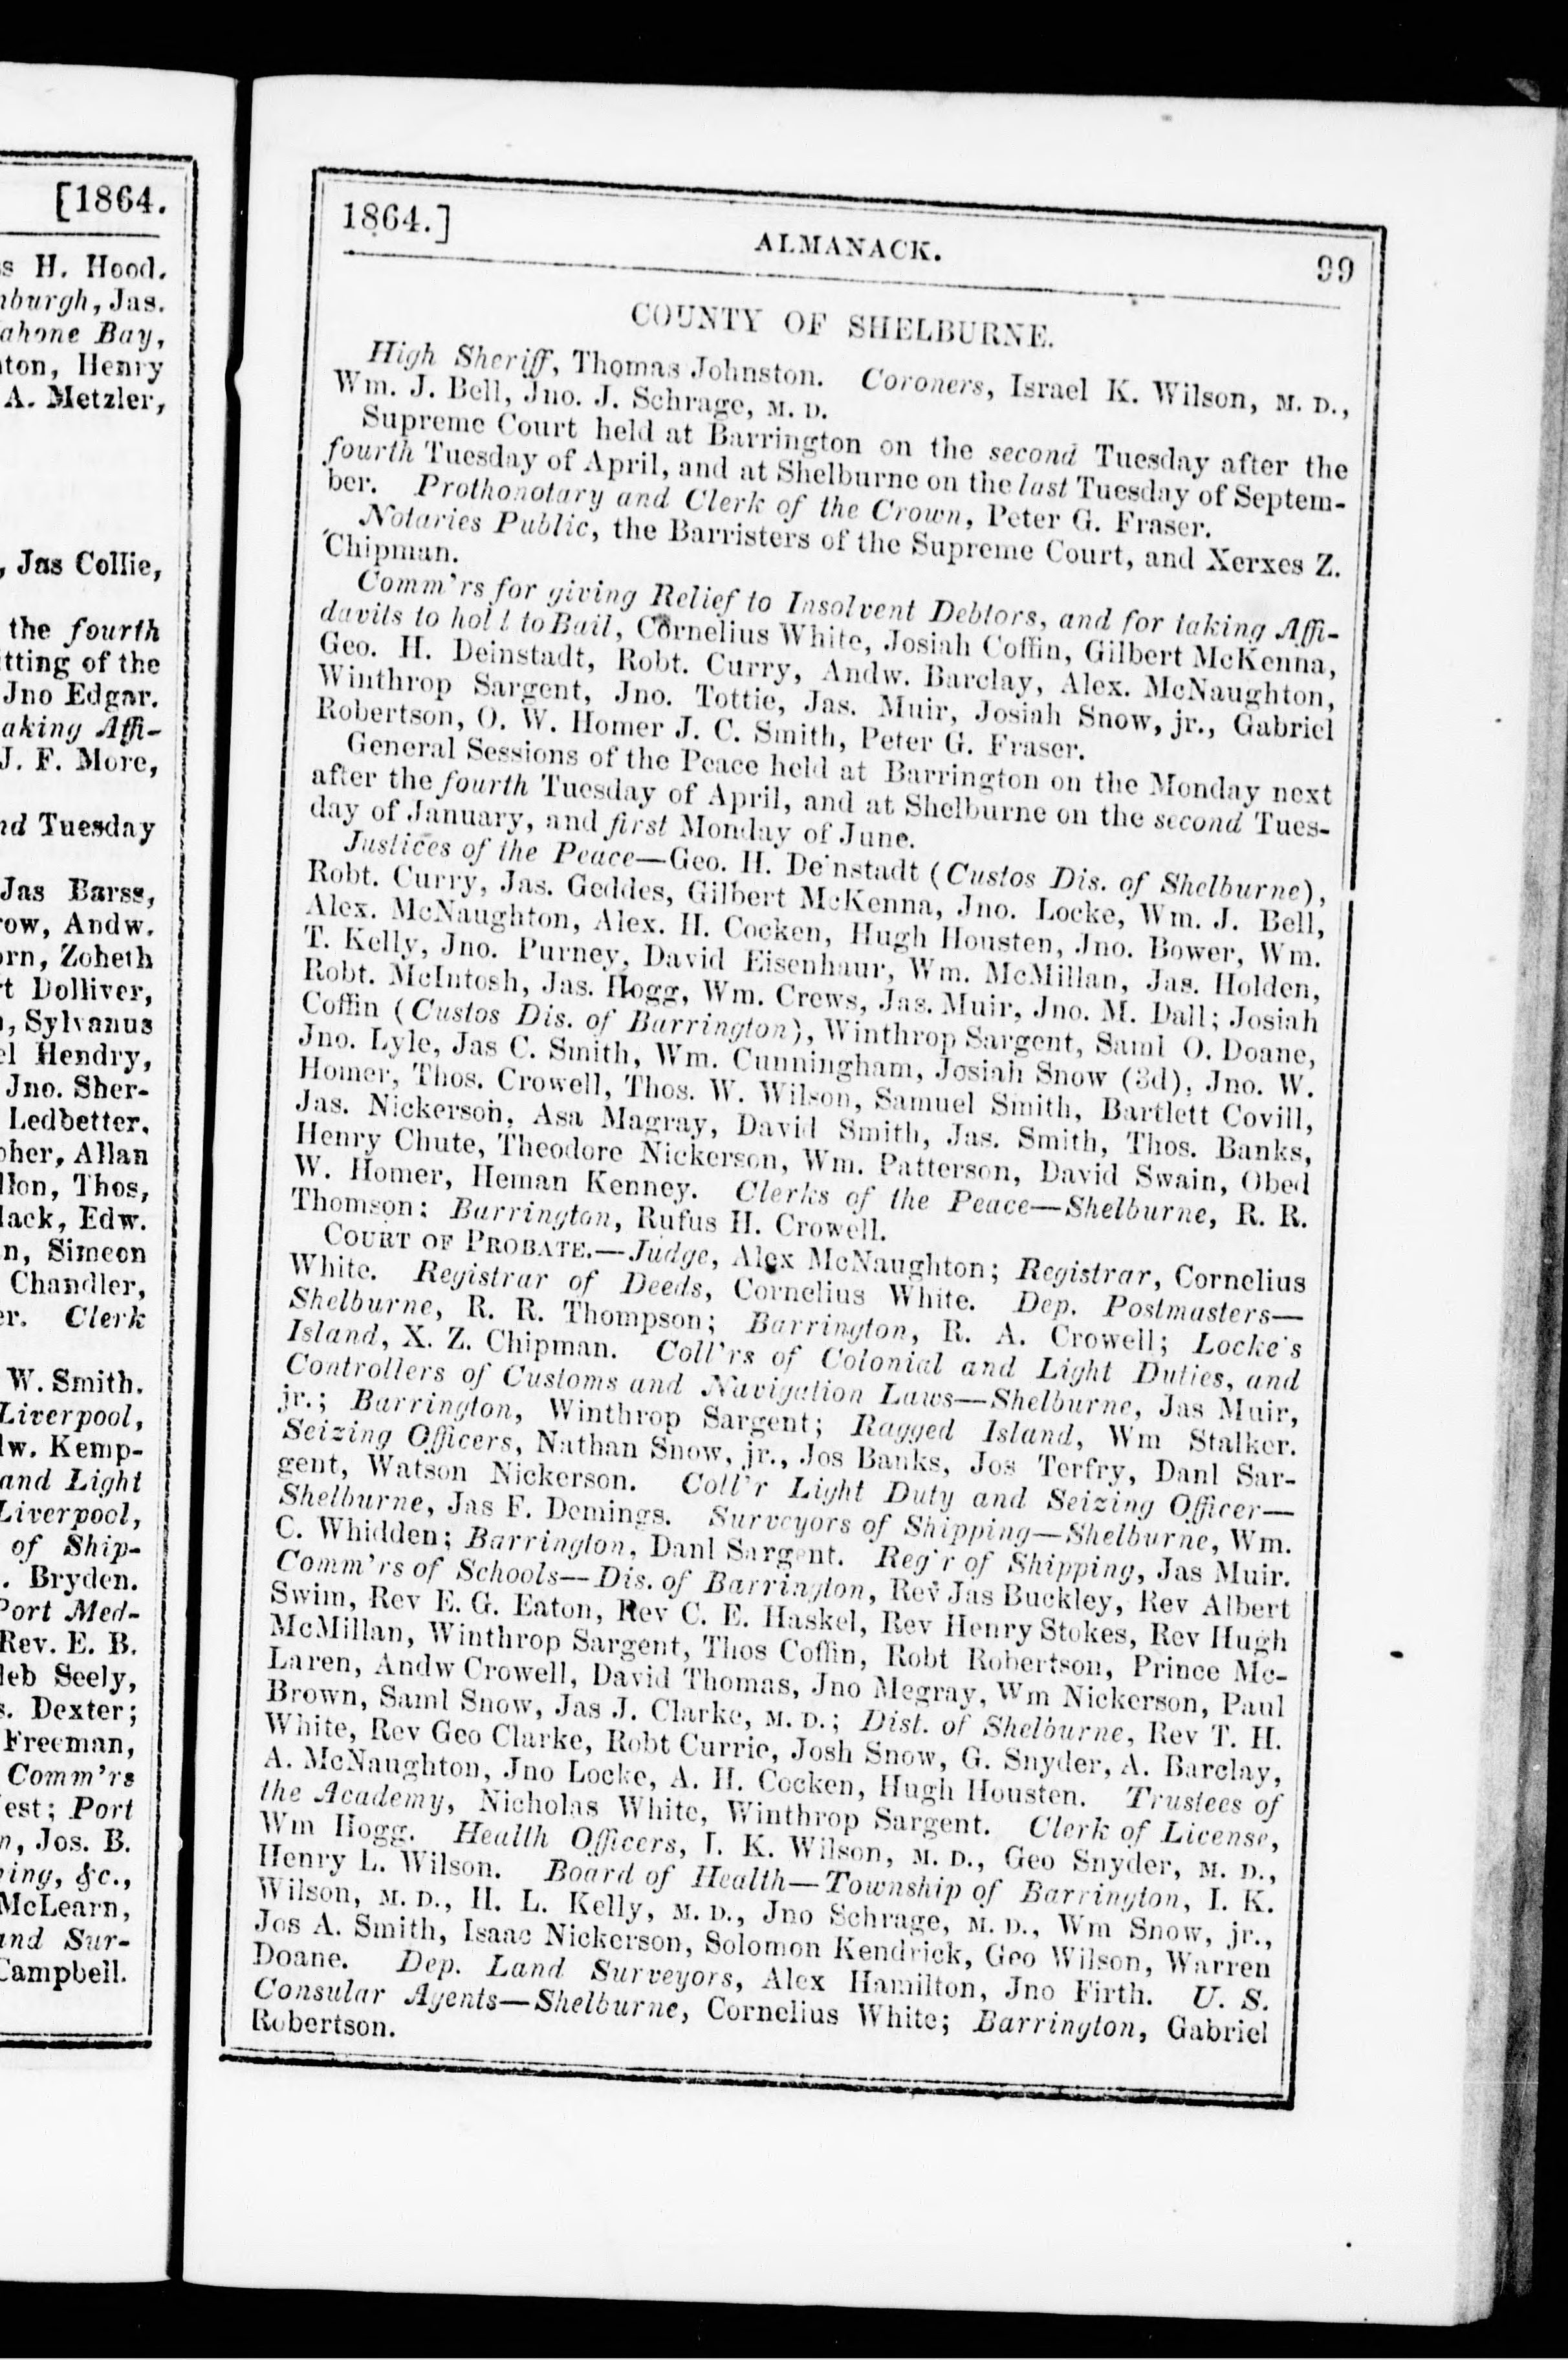 [1864.
s H. Hood.
nburgh, Jas.
ahone Bay,
ton, Henry
A. Metzler,
, Jas Collie,
the fourth
itting of the
Jno Edgar.
aking Affi-
J. F. More,
nd Tuesday
Jas Barss,
row, Andw.
orn, Zoheth
rt Dolliver,
, Sylvanus
el Hendry,
Jno. Sher-
Ledbetter,
pher, Allan
llon, Thos,
lack, Edw.
n, Simeon
Chandler,
er. Clerk
W. Smith.
Liverpool,
dw. Kemp-
and Light
Liverpool,
of Ship-
. Bryden.
Port Med-
Rev. E. B.
leb Seely,
s. Dexter;
Freeman,
Comm'rs
est; Port
n, Jos. B.
ping, &c.,
McLearn,
and Sur-
Campbell.
1864.] ALMANACK. 99
COUNTY OF SHELBURNE.
High Sheriff, Thomas Johnston. Coroners, Israel K. Wilson, M. D.,
Wm. J. Bell, Jno. J. Schrage, M. D.
Supreme Court held at Barrington on the second Tuesday after the
fourth Tuesday of April, and at Shelburne on the last Tuesday of Septem-
ber. Prothonotary and Clerk of the Crown, Peter G. Fraser.
Notaries Public, the Barristers of the Supreme Court, and Xerxes Z.
Chipman.
Comm'rs for giving Relief to Insolvent Debtors, and for taking Affi-
davits to hold to Bail, Cornelius White, Josiah Coffin, Gilbert McKenna,
Geo. H. Deinstadt, Robt. Curry, Andw. Barclay, Alex. McNaughton,
Winthrop Sargent, Jno. Tottie, Jas. Muir, Josiah Snow, jr., Gabriel
Robertson, O. W. Homer J. C. Smith, Peter G. Fraser.
General Sessions of the Peace held at Barrington on the Monday next
after the fourth Tuesday of April, and at Shelburne on the second Tues-
day of January, and first Monday of June.
Justices of the Peace—Geo. H. Deinstadt (Custos Dis. of Shelburne),
Robt. Curry, Jas. Geddes, Gilbert McKenna, Jno. Locke, Wm. J. Bell,
Alex. McNaughton, Alex. H. Cocken, Hugh Housten, Jno. Bower, Wm.
T. Kelly, Jno. Purney, David Eisenhaur, Wm. McMillan, Jas. Holden,
Robt. McIntosh, Jas. Hogg, Wm. Crews, Jas. Muir, Jno. M. Dall; Josiah
Coffin (Custos Dis. of Barrington), Winthrop Sargent, Saml O. Doane,
Jno. Lyle, Jas C. Smith, Wm. Cunningham, Josiah Snow (3d), Jno. W.
Homer, Thos. Crowell, Thos. W. Wilson, Samuel Smith, Bartlett Covill,
Jas. Nickerson, Asa Magray, David Smith, Jas. Smith, Thos. Banks,
Henry Chute, Theodore Nickerson, Wm. Patterson, David Swain, Obed
W. Homer, Heman Kenney. Clerks of the Peace—Shelburne, R. R.
Thomson; Barrington, Rufus H. Crowell.
COURT OF PROBATE.—Judge, Alex McNaughton; Registrar, Cornelius
White. Registrar of Deeds, Cornelius White. Dep. Postmasters—
Shelburne, R. R. Thompson; Barrington, R. A. Crowell; Locke's
Island, X. Z. Chipman. Coll'rs of Colonial and Light Duties, and
Controllers of Customs and Navigation Laws—Shelburne, Jas Muir,
jr.; Barrington, Winthrop Sargent; Ragged Island, Wm Stalker.
Seizing Officers, Nathan Snow, jr., Jos Banks, Jos Terfry, Danl Sar-
gent, Watson Nickerson. Coll'r Light Duty and Seizing Officer—
Shelburne, Jas F. Demings. Surveyors of Shipping—Shelburne, Wm.
C. Whidden; Barrington, Danl Sargent. Reg'r of Shipping, Jas Muir.
Comm'rs of Schools—Dis. of Barrington, Rev Jas Buckley, Rev Albert
Swim, Rev E. G. Eaton, Rev C. E. Haskel, Rev Henry Stokes, Rev Hugh
McMillan, Winthrop Sargent, Thos Coffin, Robt Robertson, Prince Mc-
Laren, Andw Crowell, David Thomas, Jno Megray, Wm Nickerson, Paul
Brown, Saml Snow, Jas J. Clarke, M. D.; Dist. of Shelburne, Rev T. H.
White, Rev Geo Clarke, Robt Currie, Josh Snow, G. Snyder, A. Barclay,
A. McNaughton, Jno Locke, A. H. Cocken, Hugh Housten. Trustees of
the Academy, Nicholas White, Winthrop Sargent. Clerk of License,
Wm Hogg. Health Officers, I. K. Wilson, M. D., Geo Snyder, M. D.,
Henry L. Wilson. Board of Health—Township of Barrington, I. K.
Wilson, M. D., H. L. Kelly, M. D., Jno Schrage, M. D., Wm Snow, jr.,
Jos A. Smith, Isaac Nickerson, Solomon Kendrick, Geo Wilson, Warren
Doane. Dep. Land Surveyors, Alex Hamilton, Jno Firth. U. S.
Consular Agents—Shelburne, Cornelius White; Barrington, Gabriel
Robertson.